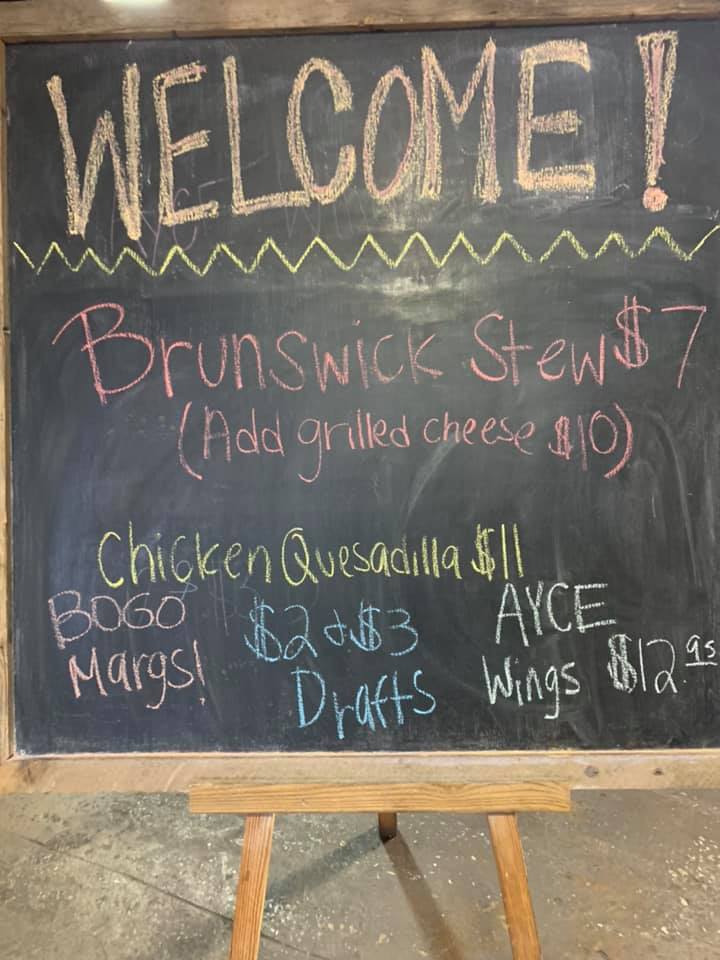 WELCOME!
Brunswick Stew $7
(Add grilled cheese $10)
Chicken Quesadilla $11
BOGO
Margs!
$2 & $3
Drafts
AYCE
Wings $12.95